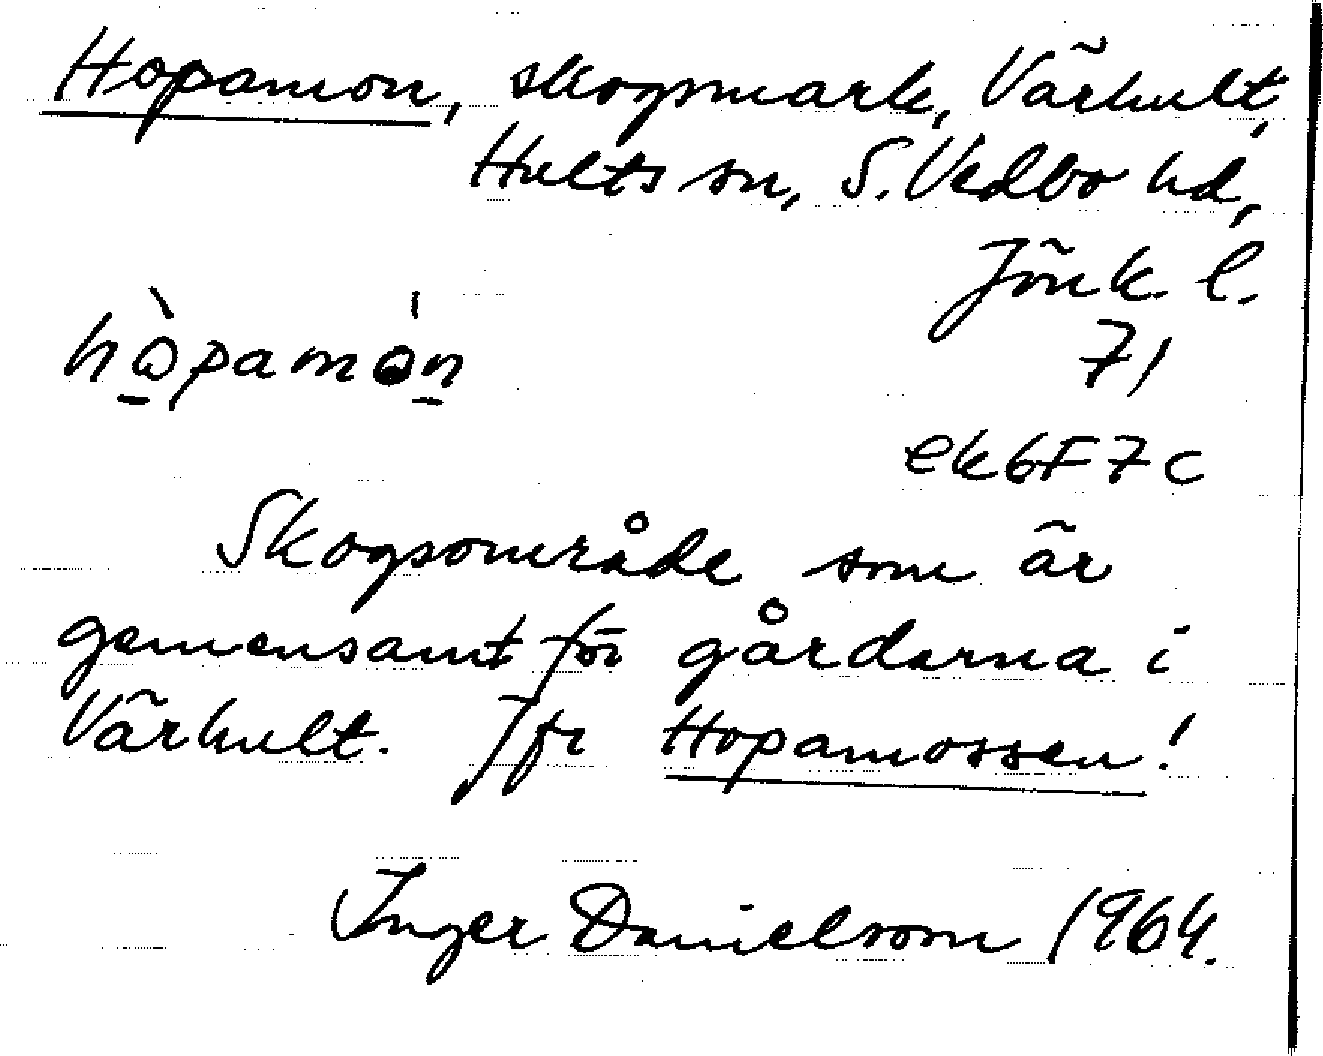 Hopamon, skogsmark, Värhult,
Hults sn, S. Vedbo hd,
Jönk. l.
hòpamón
71
ek 6F7c
Skogsområde som är
gemensamt för gårdarna i
Värhult. Jfr Hopamossen!
Inger Danielsson 1964.